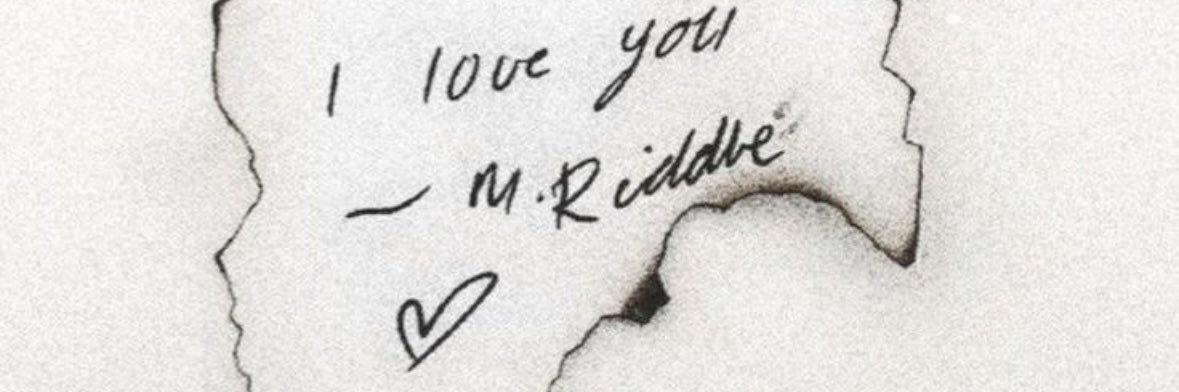 I love you
— M. Riddle